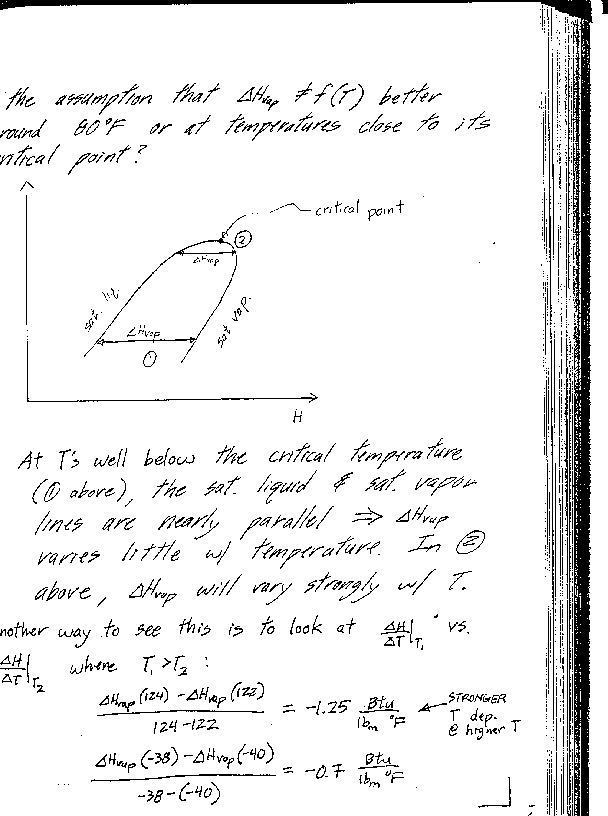 the assumption that ΔHvap ≠ f(T) better
round 80°F or at temperatures close to its
ritical point?
critical point
②
ΔHvap
sat. liq.
sat vap.
ΔHvap
①
H
At T's well below the critical temperature
(① above), the sat. liquid & sat. vapor
lines are nearly parallel ⇒ ΔHvap
varies little w/ temperature. In ②
above, ΔHvap will vary strongly w/ T.
nother way to see this is to look at ΔH/ΔT|T₁ vs.
ΔH/ΔT|T₂ where T₁>T₂ :
ΔHvap(124) - ΔHvap(122) / 124-122 = -1.25 Btu/lbm °F ← STRONGER
T dep.
@ higher T
ΔHvap(-38) - ΔHvap(-40) / -38-(-40) = -0.7 Btu/lbm °F